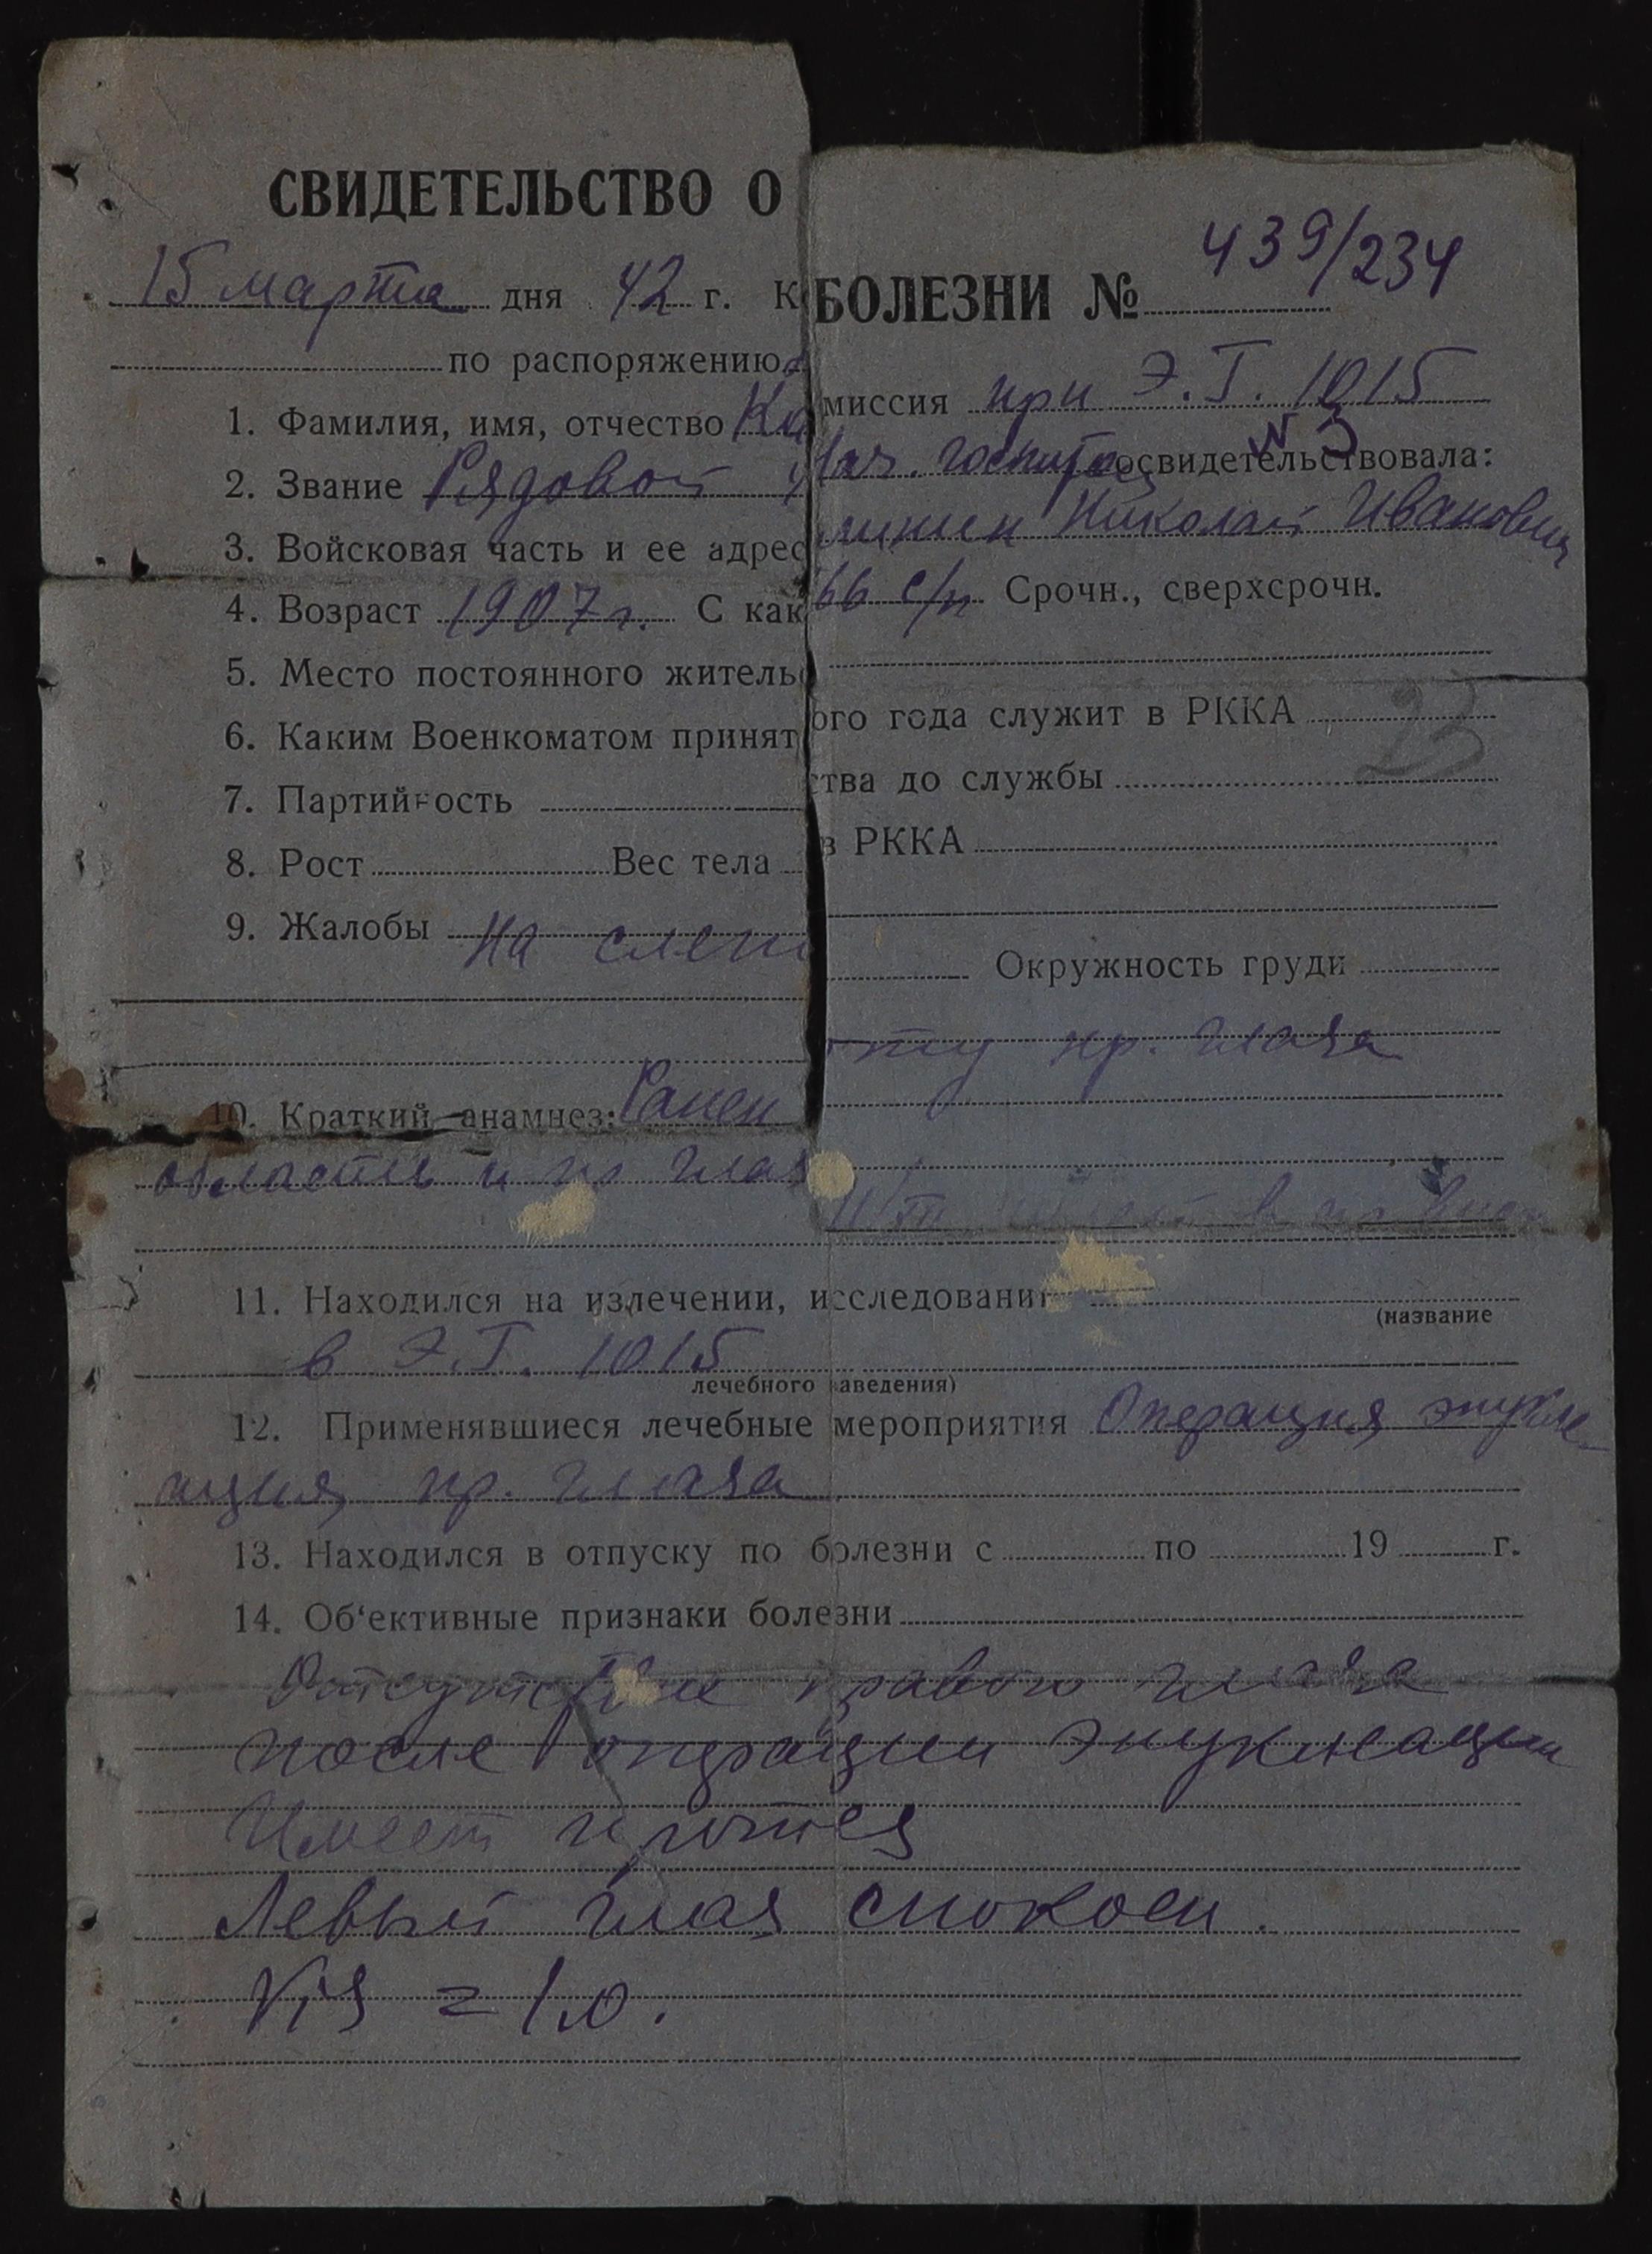 СВИДЕТЕЛЬСТВО О БОЛЕЗНИ № 439/234
15 марта дня 42 г. Комиссия при Э.Г. 1015
№ 3
по распоряжению Нач. госпит освидетельствовала:
1. Фамилия, имя, отчество Калинин Николай Иванович
2. Звание Рядовой 466 с/п Срочн., сверхсрочн.
3. Войсковая часть и ее адрес
4. Возраст 1907 г. С какого года служит в РККА
23
5. Место постоянного жительства до службы
6. Каким Военкоматом принят в РККА
7. Партийность
8. Рост Вес тела Окружность груди
9. Жалобы на слепоту пр. глаза
10. Краткий анамнез: Ранен в пр.
области и пр глаз
11. Находился на излечении, исследовании
(название
в Э.Г. 1015
лечебного заведения)
12. Применявшиеся лечебные мероприятия Операция энукле
ация пр. глаза
13. Находился в отпуску по болезни с по 19 г.
14. Об'ективные признаки болезни
Отсутствие правого глаза
после операции энуклеации
Имеет протез
Левый глаз спокоен.
Vis = 1,0.